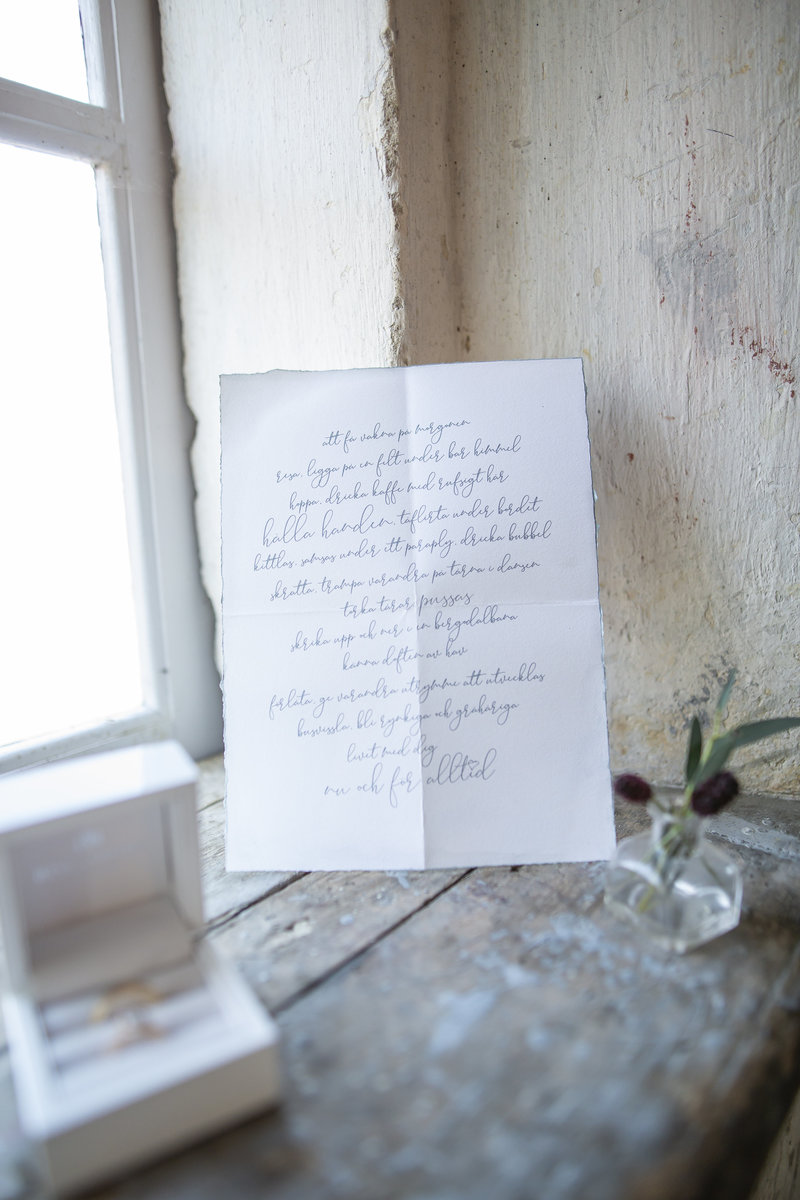 att få vakna på morgonen
resa, ligga på en filt under bar himmel
hoppa, dricka kaffe med rufsigt hår
hålla handen, tåflirta under bordet
kittlas, samsas under ett paraply, dricka bubbel
skratta, trampa varandra på tårna i dansen
torka tårar, pussas
skrika upp och ner i en bergodalbana
känna doften av hav
förlåta, ge varandra utrymme att utvecklas
busvissla, bli rynkiga och gråhåriga
livet med dig
nu och för alltid